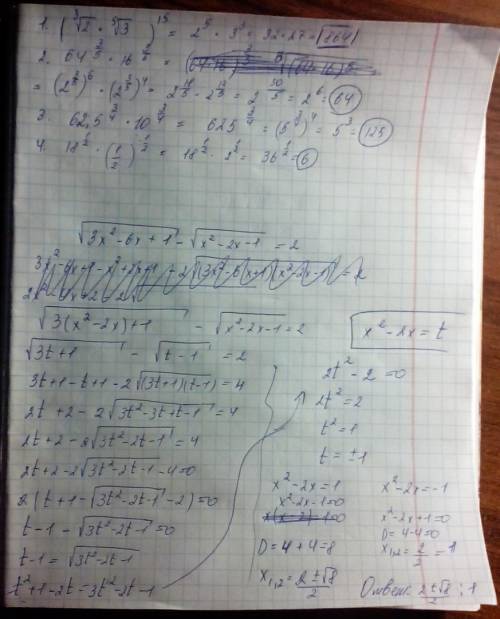 1. (∛2 · ⁵√3)¹⁵ = 2⁵ · 3³ = 32 · 27 = 864
2. 64^(2/5) · 16^(2/5) =
= (2^(2/5))⁶ · (2^(2/5))⁴ = 2^(12/5) · 2^(8/5) =
3. 62,5^(3/4) · 10^(3/4) = 625^(3/4) = (5^(3/4))⁴ = 5³ = 125
4. 18^(1/2) · (1/2)
√(3x²-6x+1) - √(x²-2x-1) = 2
√(3(x²-2x)+1) - √(x²-2x-1) = 2
x²-2x = t
√(3t+1) - √(t-1) = 2
3t+1-t+1-2√((3t+1)(t-1)) = 4
2t+2-2√(3t²-3t+t-1) = 4
2t+2-2√(3t²-2t-1) = 4
2t+2-2√(3t²-2t-1)-4=0
2(t+1-√(3t²-2t-1)-2)=0
t-1-√(3t²-2t-1)=0
t-1=√(3t²-2t-1)
t²+1-2t-3t²-2t-1
2t²-2=0
2t²=2
t²=1
t=±1
x²-2x=1
x²-2x-1=0
D=4+4=8
x₁,₂=(2±√8)/2
x²-2x=-1
x²-2x+1=0
D=4-4=0
x₁,₂=2/2=1
Ответ: (2±√8)/2 ; 1